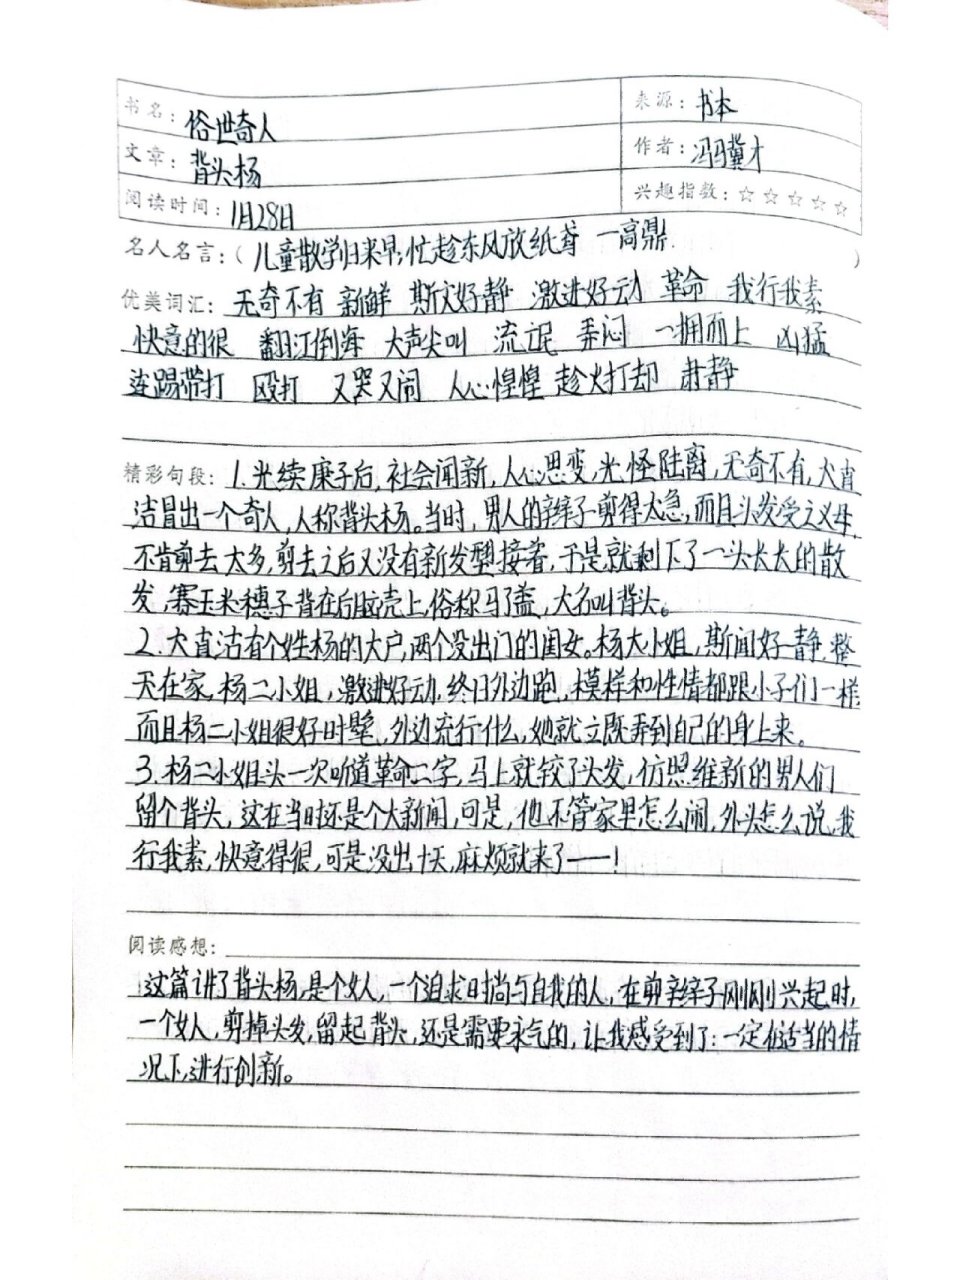 书名：俗世奇人 来源：书本
文章：背头杨 作者：冯骥才
阅读时间：1月28日 兴趣指数：☆☆☆☆☆
名人名言：（儿童散学归来早，忙趁东风放纸鸢 一高鼎）
优美词汇：无奇不有 新鲜 斯文好静 激进好动 革命 我行我素
快意的很 翻江倒海 大声尖叫 流氓 弄闷 一拥而上 凶猛
连踢带打 殴打 又哭又闹 人心惶惶 趁火打却 肃静
精彩句段：1.光续庚子后，社会闻新，人心思变，光怪陆离，无奇不有，大直
沽冒出一个奇人，人称背头杨。当时，男人的辫子剪得太急，而且头发受之父母，
不肯剪去太多，剪去之后又没有新发型接着，于是就剩下了一头长长的散
发，赛玉米穗子背在后脑壳上，俗称马子盖，大名叫背头。
2.大直沽有个姓杨的大户，两个没出门的闺女。杨大小姐，斯闻好静，整
天在家，杨二小姐，激进好动，终日外边跑，模样和性情都跟小子们一样，
而且杨二小姐很好时髦，外边流行什么，她就立既弄到自己的身上来。
3.杨二小姐头一次听道革命二字，马上就铰了头发，仿照维新的男人们
留个背头，这在当时还是个大新闻，可是，他不管家里怎么闹，外头怎么说，我
行我素，快意得很，可是没出十天，麻烦就来了——！
阅读感想：
这篇讲了背头杨，是个女人，一个追求时尚与自我的人，在剪辫子刚刚兴起时，
一个女人，剪掉头发，留起背头，还是需要永气的，让我感受到了：一定在适当的情
况下，进行创新。